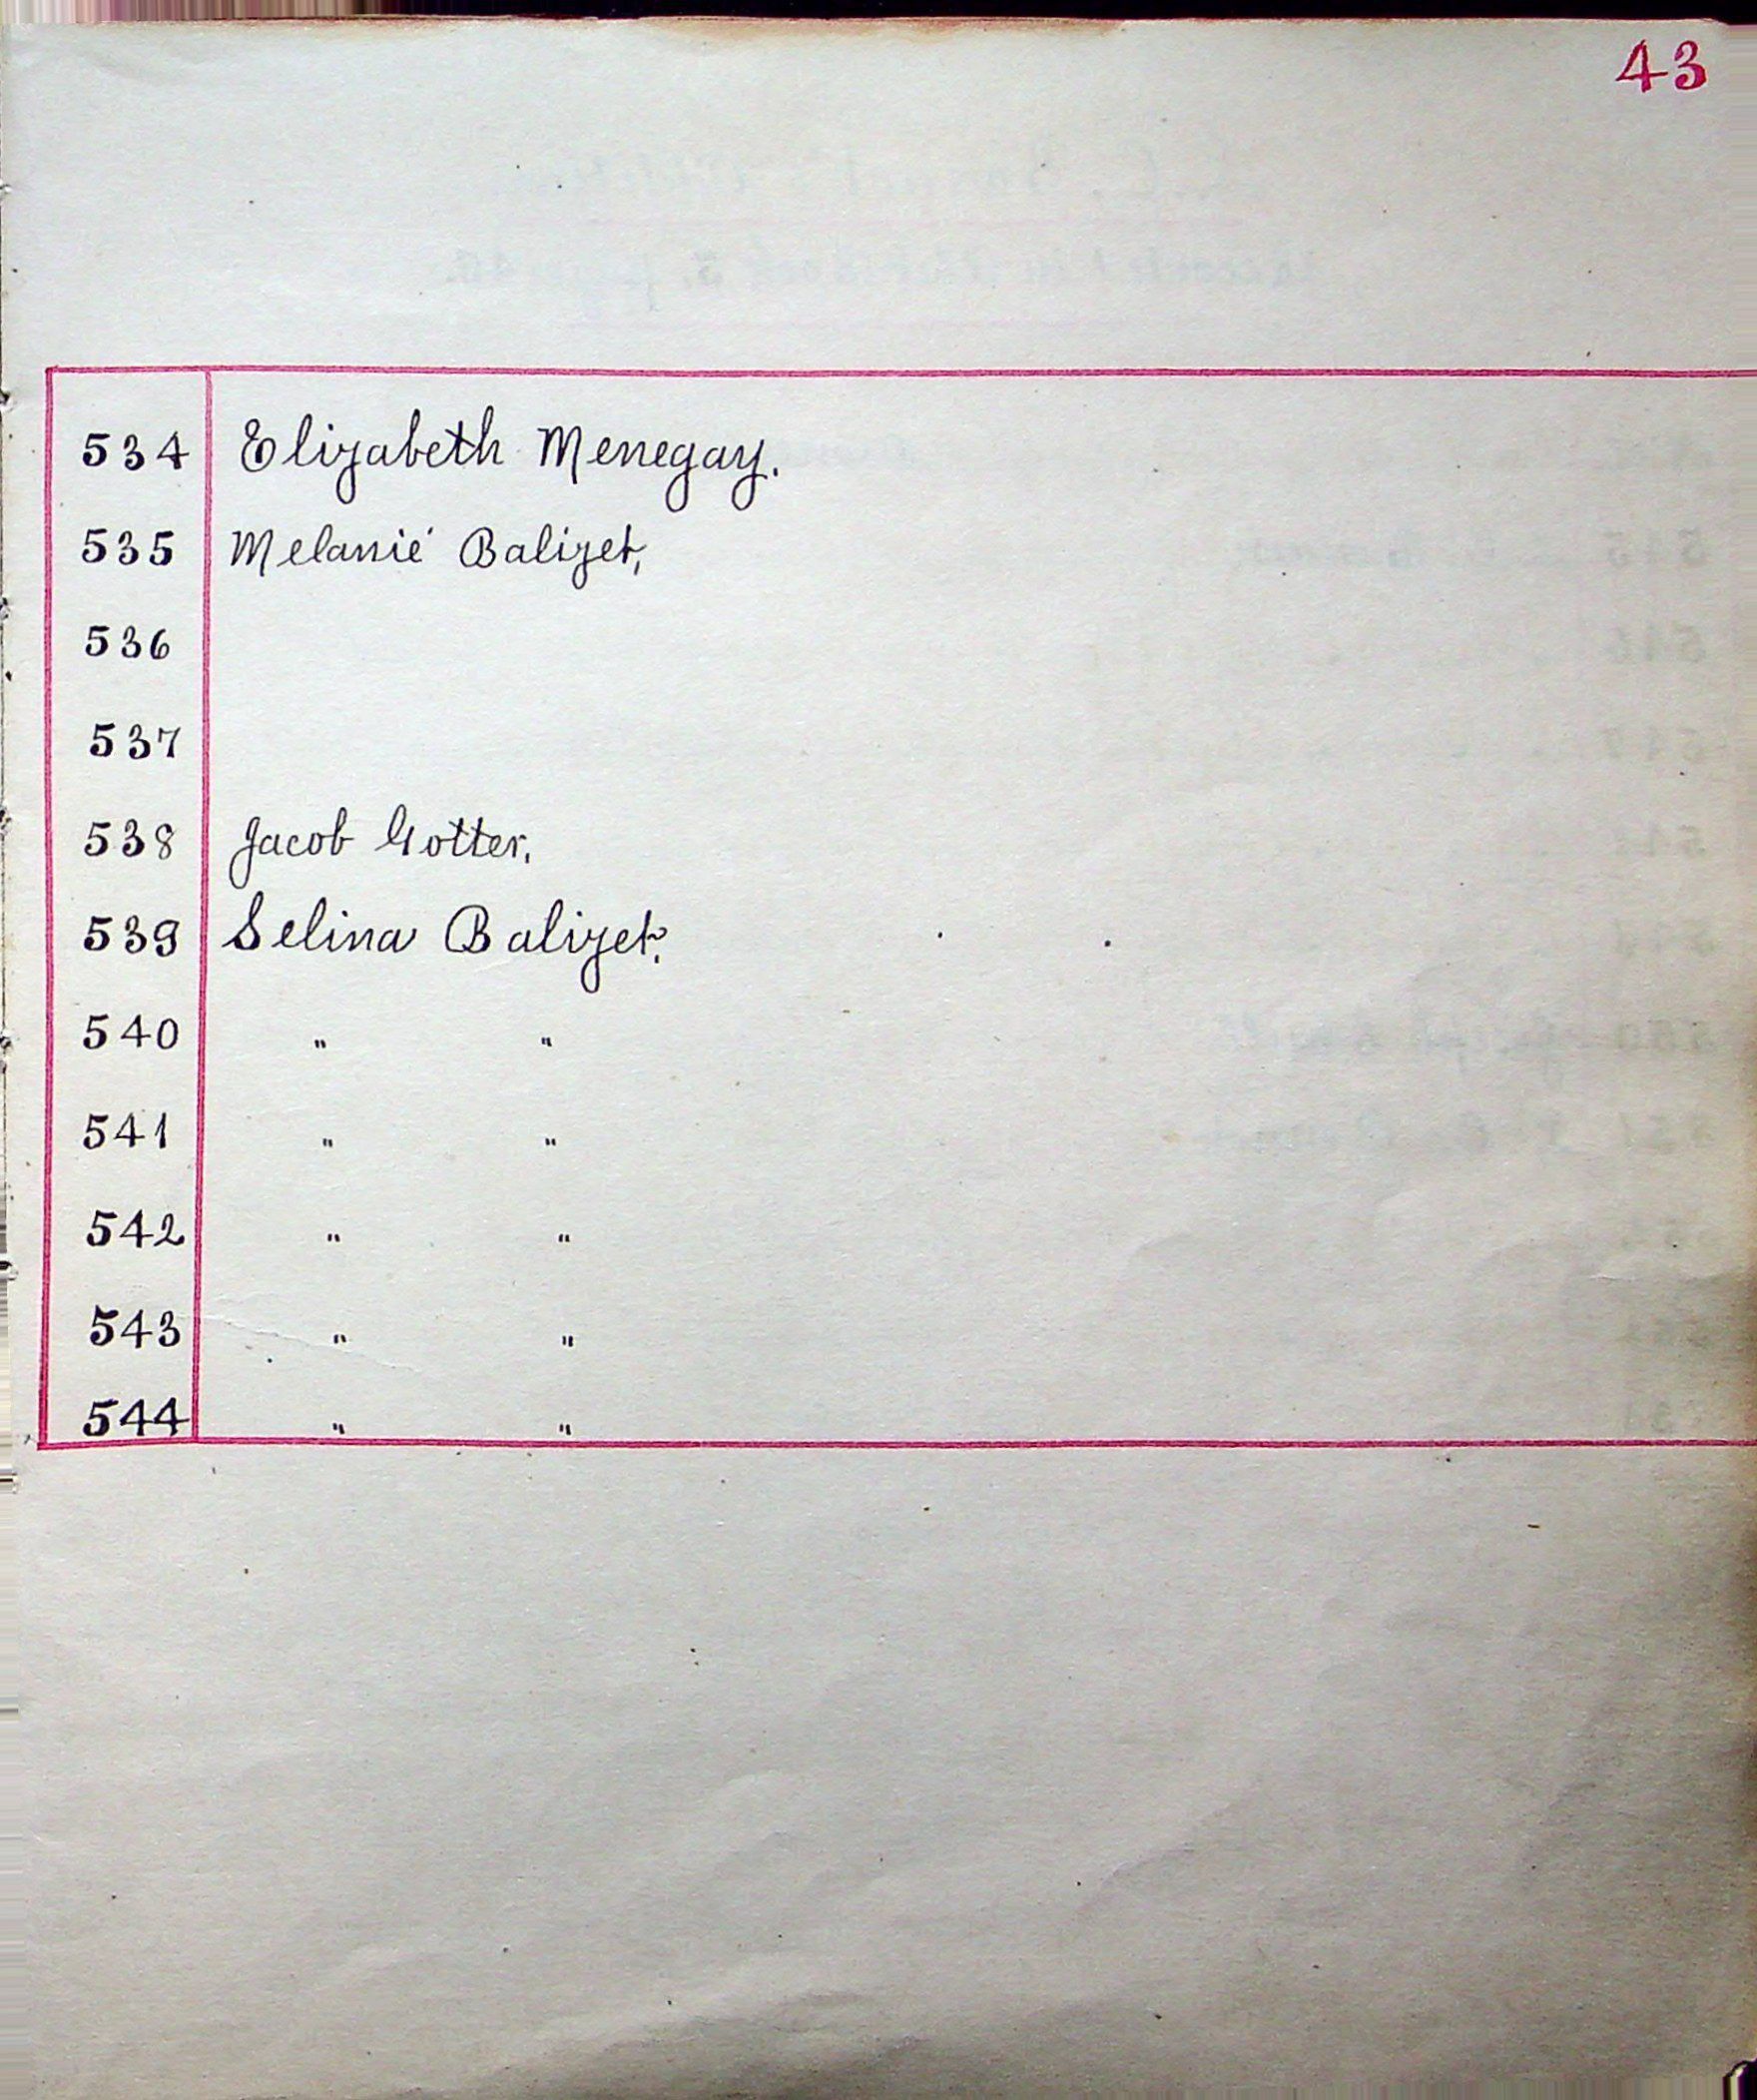 43
534 Elizabeth Menegay.
535 Melanié Balizet,
536
537
538 Jacob Gotter.
539 Selina Balizet,
540 " "
541 " "
542 " "
543 " "
544 " "